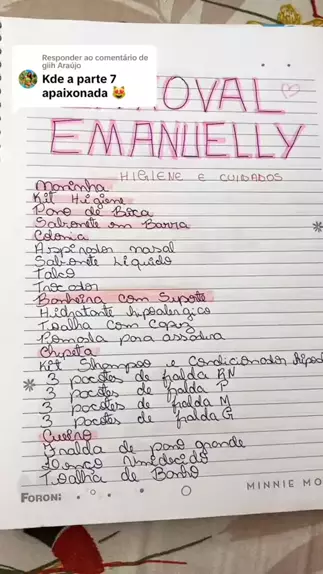 Responder ao comentário de
giih Araújo
Kde a parte 7
apaixonada 😻
ENXOVAL
EMANUELLY
HIGIENE E CUIDADOS
Maninha
Kit Higiene
Pano de Boca
Sabonete em Barra
Colonia
Aspirador nasal
Sabonete Líquido
Talco
Trocador
Banheira com Suporte
Hidratante hipoalergico
Toalha com Capuz
Pomada para assadura
Chupeta
Kit Shampoo e Condicionador hipoal
3 pacotes de fralda RN
3 pacotes de fralda P
3 pacotes de fralda M
3 pacotes de fralda G
Cueiro
Fralda de pano grande
Lenço Umidecido
Toalha de Banho
FORONI
MINNIE MO